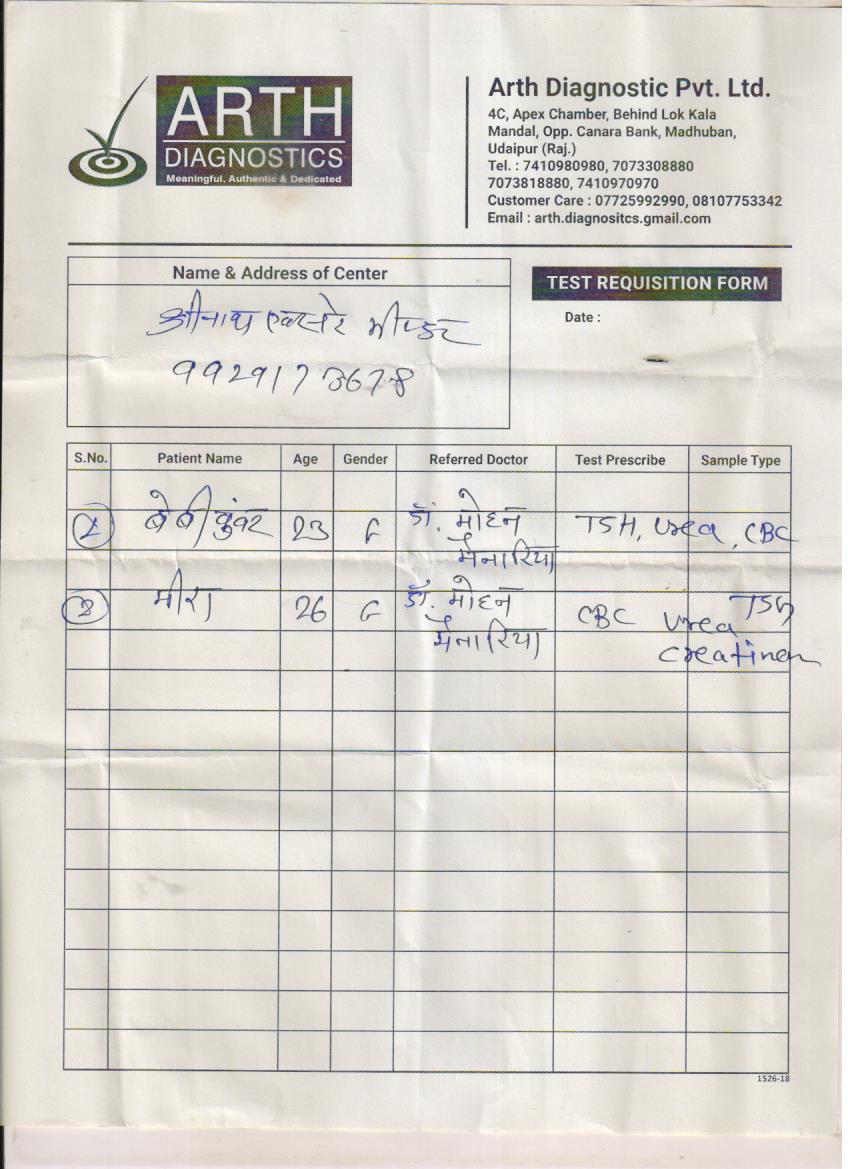 ARTH
DIAGNOSTICS
Meaningful, Authentic & Dedicated
Arth Diagnostic Pvt. Ltd.
4C, Apex Chamber, Behind Lok Kala
Mandal, Opp. Canara Bank, Madhuban,
Udaipur (Raj.)
Tel. : 7410980980, 7073308880
7073818880, 7410970970
Customer Care : 07725992990, 08107753342
Email : arth.diagnositcs.gmail.com
Name & Address of Center
श्रीनाथ एक्सरे भीण्डर
9929173678
TEST REQUISITION FORM
Date :
S.No. Patient Name Age Gender Referred Doctor Test Prescribe Sample Type
1 बेबी कुंवर 23 F डॉ. मोहन मेनारिया TSH, Urea, CBC
2 मीरा 26 F डॉ. मोहन मेनारिया CBC Urea TSH
1526-18